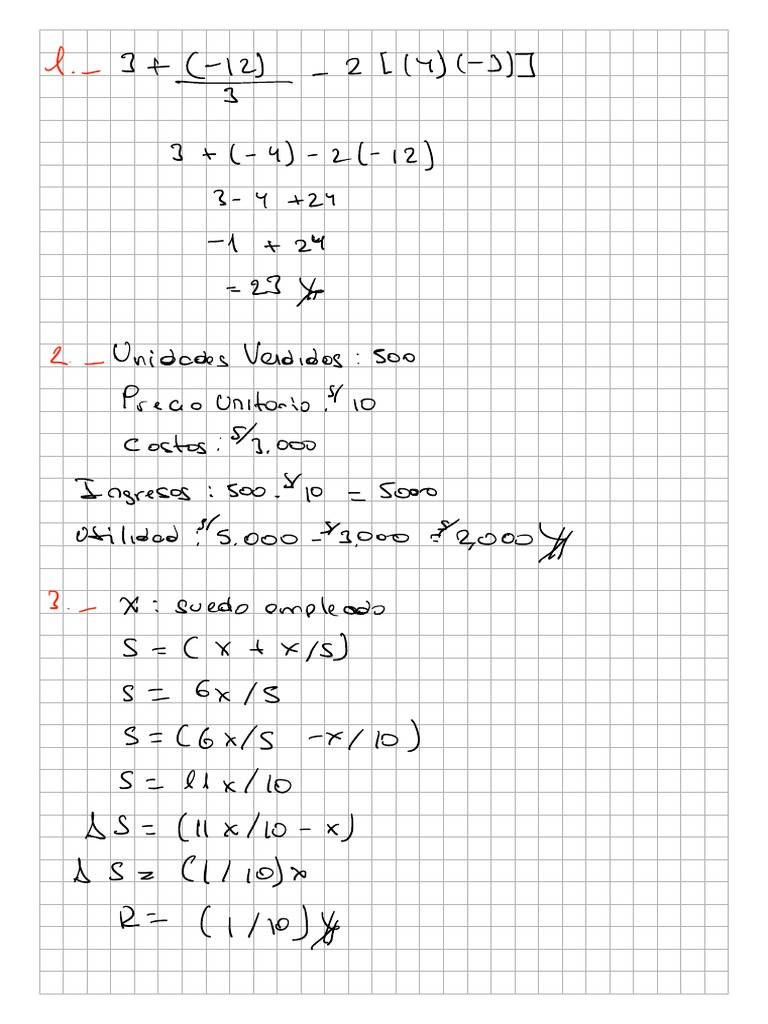 1.- 3 + (-12)/3 - 2 [(4)(-3)]
3 + (-4) - 2(-12)
3 - 4 + 24
-1 + 24
= 23
2.- Unidades Vendidos : 500
Precio Unitario : S/ 10
Costos : S/ 3,000
Ingresos : 500 . S/ 10 = 5000
Utilidad : S/ 5.000 - S/ 3,000 = S/ 2,000
3.- x : suedo empleado
S = ( x + x/5)
S = 6x/5
S = (6x/5 - x/10)
S = 11x/10
Δ S = (11x/10 - x)
Δ S = (1/10)x
R = (1/10)